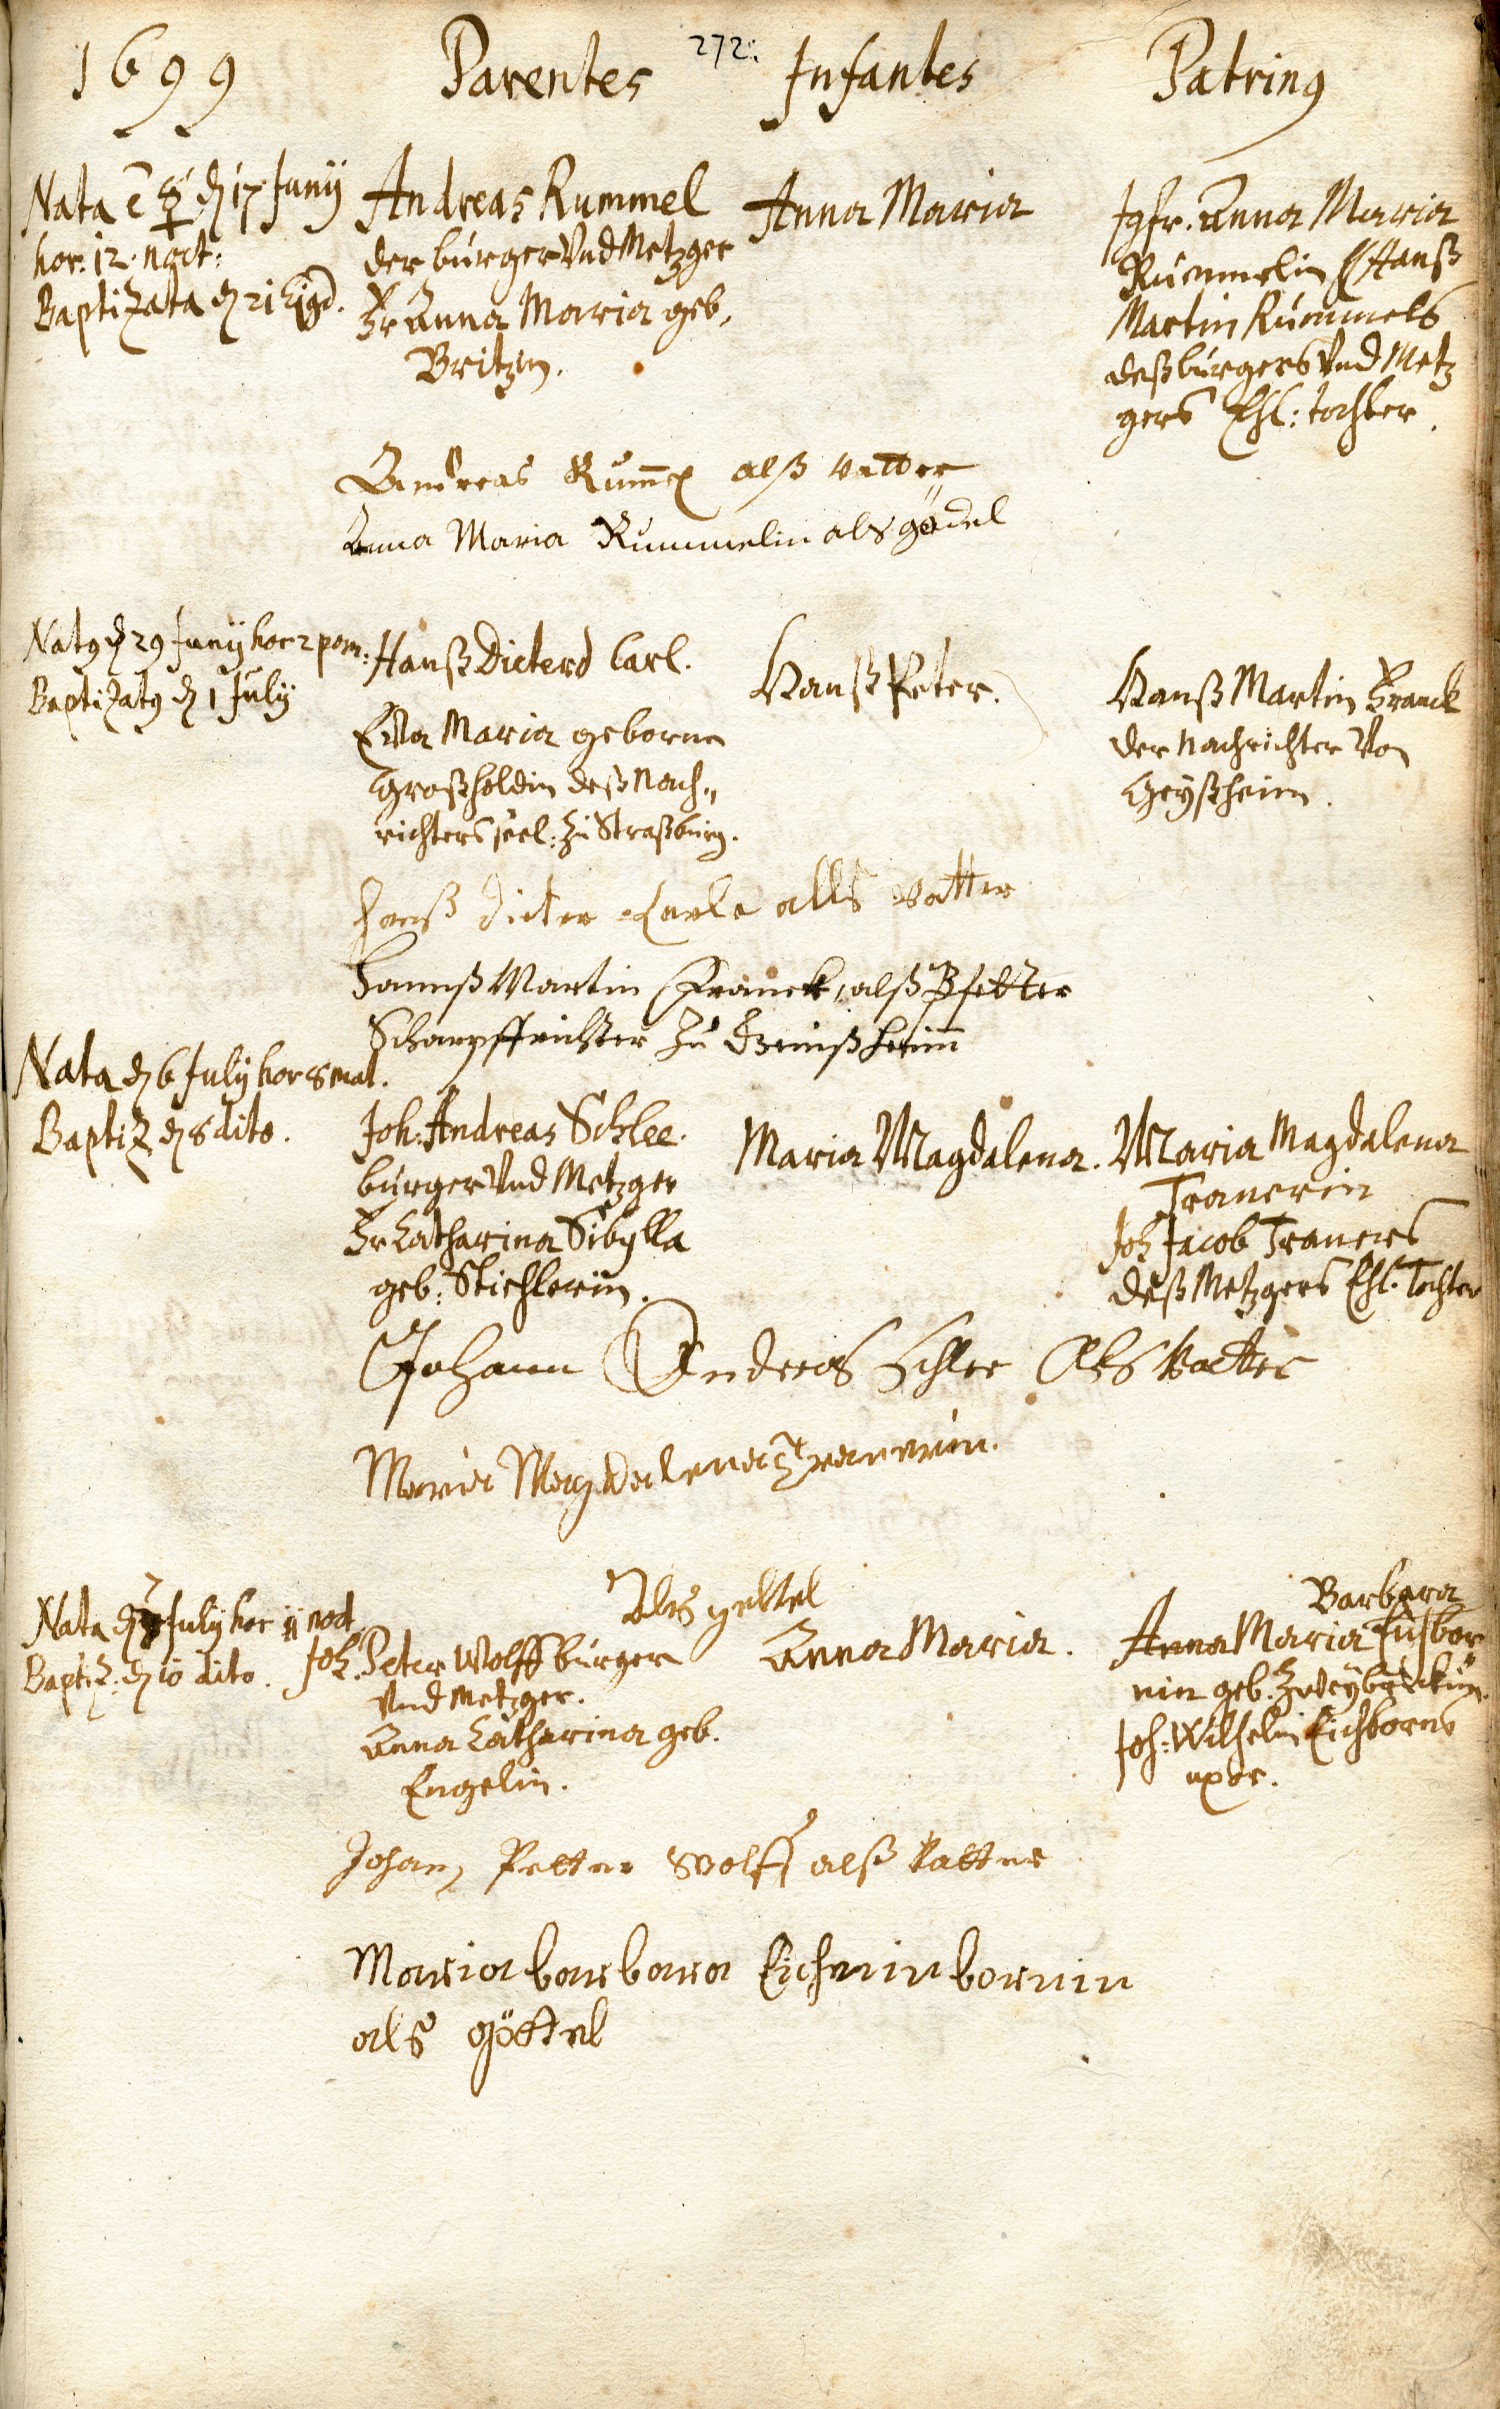 1699 Parentes 272. Infantes Patrinus
Nata d. 17 Junij
hor. 12. noct:
Baptizata d. 21 Ejusd.
Andreas Rummel
der burger Vnd Metzger
Fr Anna Maria geb.
Britzin.
Anna Maria
Jgfr. Anna Maria
Rummelin Hanß
Martin Rummels
deß burgers Vnd Metz
gers Ehl: tochter.
Andreas Rum̄el alß vatter
Anna Maria Rummelin als gödel
Natus d. 29 Junij hor 2 pom:
Baptizatus d. 1 July
Hanß Dieterd Carl.
Eva Maria geborne
Großholdin deß Nach„
richters seel: zu Straßburg.
Hanß Peter.
Hanß Martin Franck
der Nachrichter Von
Geyßheim.
Hanß Dieter Carle alls vatter
Hannß Martin Franck, alß Pfetter
Scharpffrichter zu
Nata d. 6 July hor 8 mat.
Baptiz d. 8 dito.
Joh: Andreas Schlee.
burger Vnd Metzger
Fr Catharina Sibylla
geb: Stichlerin.
Maria Magdalena.
Maria Magdalena
Tranerin
Joh Jacob Traners
deß Metzgers Ehl. Tochter
Johann Andreas Schlee Als Vatter
Maria Magdalena Tranerin.
Als gettel
Nata d. 7 July hor 11 noct.
Baptiz: d. 10 dito.
Joh. Peter Wolff burger
Vnd Metzger.
Anna Catharina geb.
Engelin.
Anna Maria.
Barbara
Anna Maria
nin geb. Zweybrückin
Joh: Wilhelm Eichborns
uxor.
Johan Petter Wolff alß Vatter
Maria barbara Eicheninbornin
als göttel